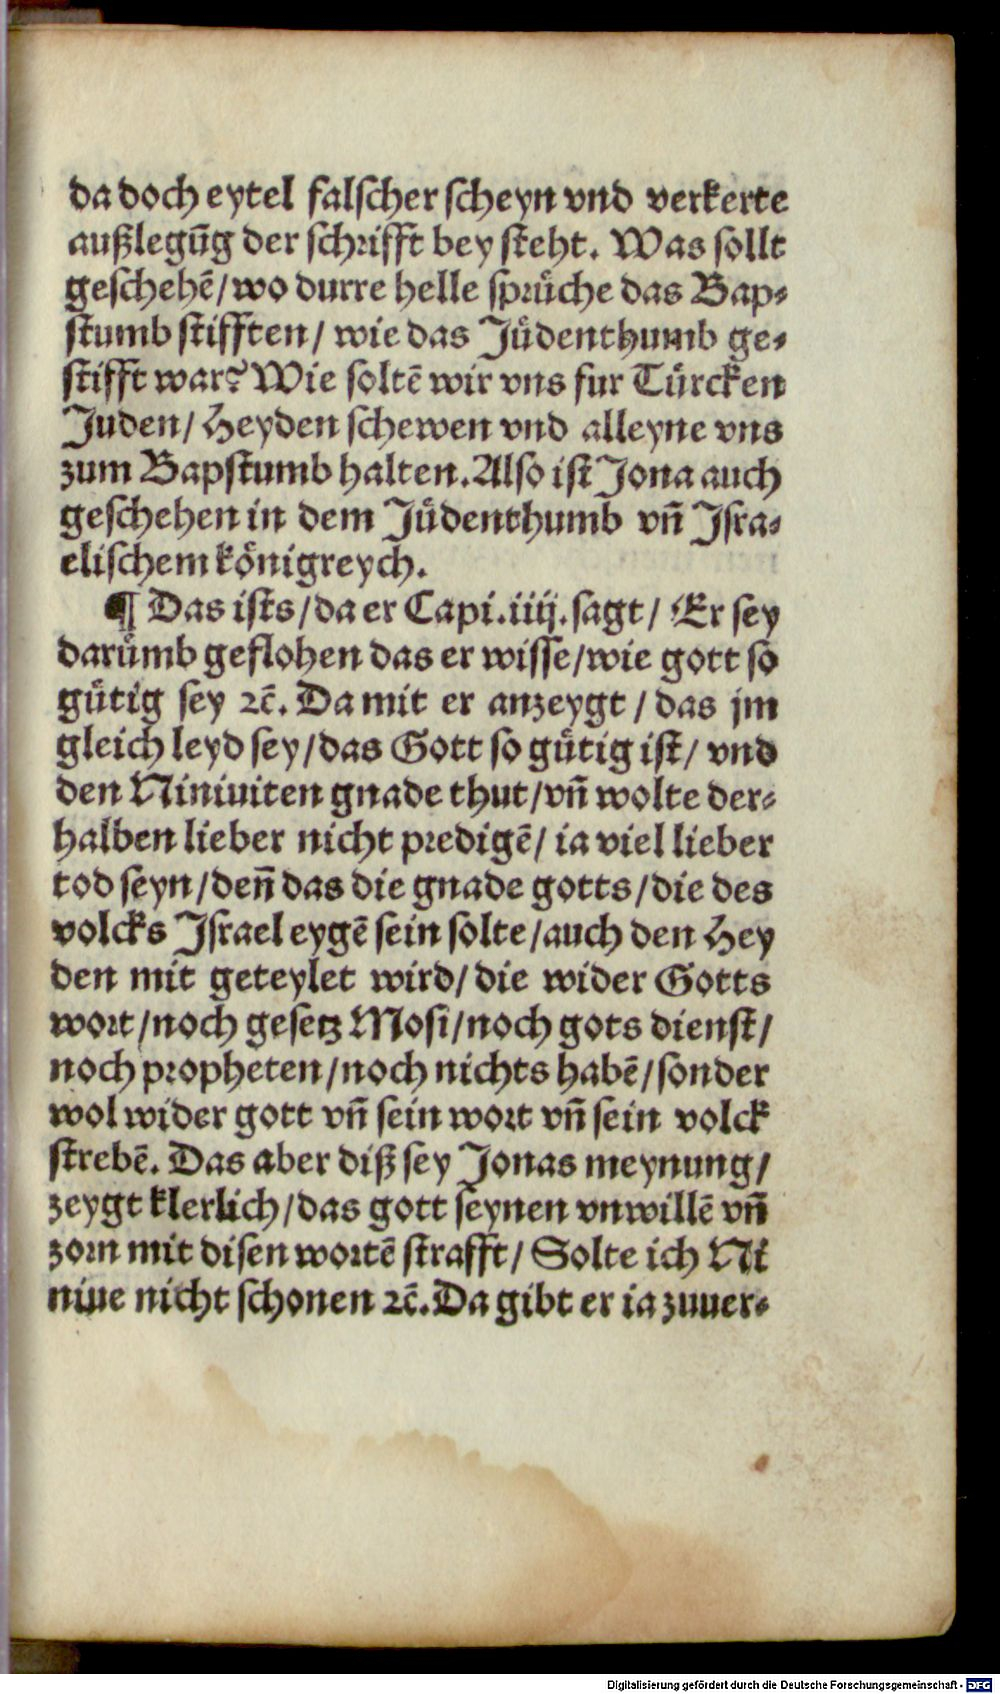 da doch eytel falscher scheyn vnd verkerte
außlegūg der schrifft bey steht. Was sollt
geschehē/ wo durre helle sprüche das Bap⸗
stumb stifften/ wie das Jüdenthumb ge⸗
stifft war? Wie soltē wir vns fur Türcken
Juden/ Heyden schewen vnd alleyne vns
zum Bapstumb halten. Also ist Jona auch
geschehen in dem Jüdenthumb vn̄ Isra⸗
elischem königreych.
¶ Das ists/ da er Capi. iiij. sagt/ Er sey
darümb geflohen das er wisse/ wie gott so
gütig sey ꝛc̄. Da mit er anzeygt/ das jm
gleich leyd sey/ das Gott so gütig ist/ vnd
den Niniuiten gnade thut/ vn̄ wolte der⸗
halben lieber nicht predigē/ ia viel lieber
tod seyn/ den̄ das die gnade gotts/ die des
volcks Israel eygē sein solte/ auch den Hey
den mit geteylet wird/ die wider Gotts
wort/ noch gesetz Mosi/ noch gots dienst/
noch propheten/ noch nichts habē/ sonder
wol wider gott vn̄ sein wort vn̄ sein volck
strebē. Das aber diß sey Jonas meynung/
zeygt klerlich/ das gott seynen vnwillē vn̄
zorn mit disen wortē strafft/ Solte ich Ni
niue nicht schonen ꝛc̄. Da gibt er ia zuuer⸗
Digitalisierung gefördert durch die Deutsche Forschungsgemeinschaft - DFG